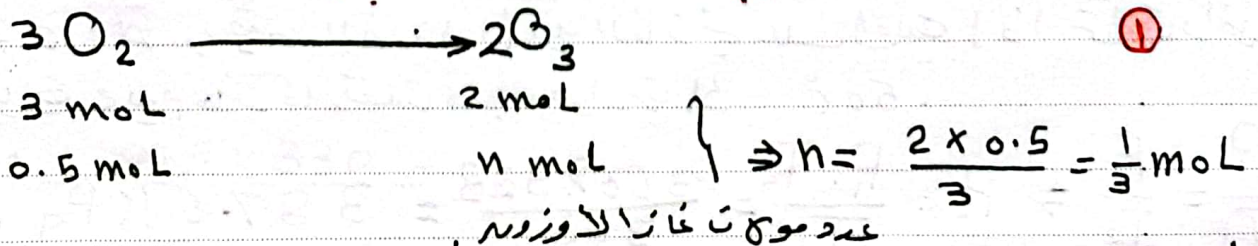 3 O₂ ⟶ 2O₃ ①
3 moL 2 moL
0.5 moL n moL } ⇒ n = (2 × 0.5)/3 = 1/3 moL
عدد مولات غاز الأوزون